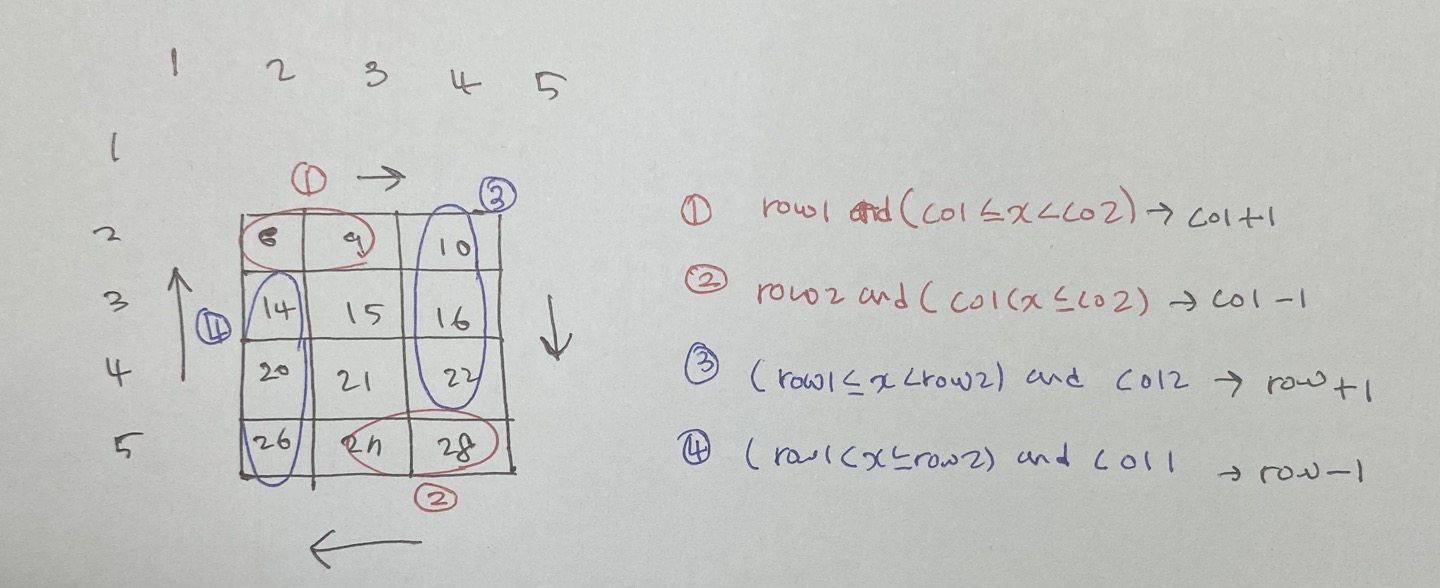 1 2 3 4 5
1
① → ③
2 8 9 10
3 14 15 16
④
4 20 21 22
5 26 27 28
②
←
① row1 and (col ≤ x < co2) → col+1
② row2 and (col < x ≤ co2) → col -1
③ (row1 ≤ x < row2) and col2 → row+1
④ (row1 < x ≤ row2) and col1 → row-1